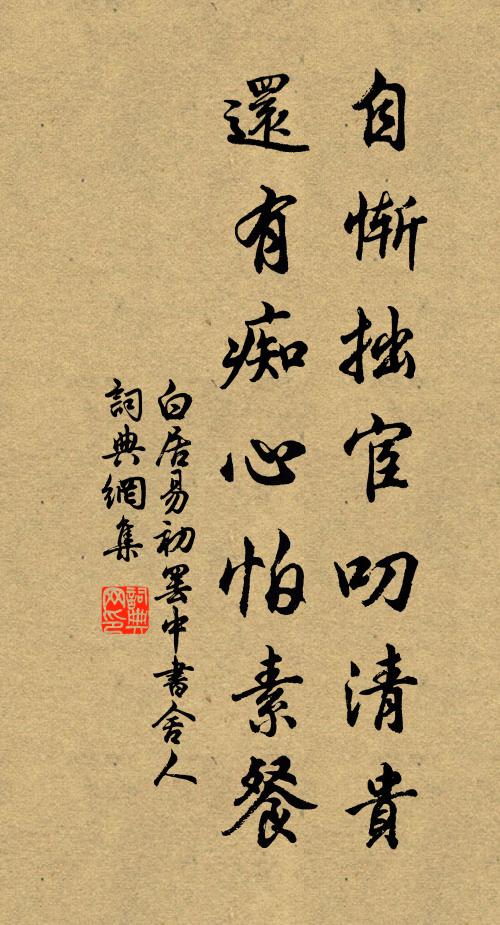 自慚拙宦叨清貴
還有痴心怕素餐
白居易初罷中書舍人
詞典網集
詞典
网印